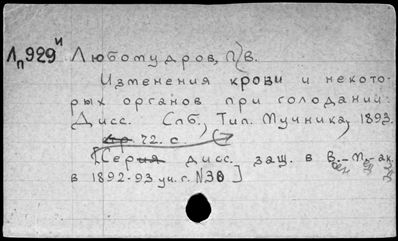 Лп929и Любомудров, П/В.
Изменения крови и некото-
рых органов при голодании.
Дисс. Спб, Тип. Мучника, 1893.
72. с.
[Серия дисс. защ. в В.-М. ак.
в 1892-93 уч. г. N30]